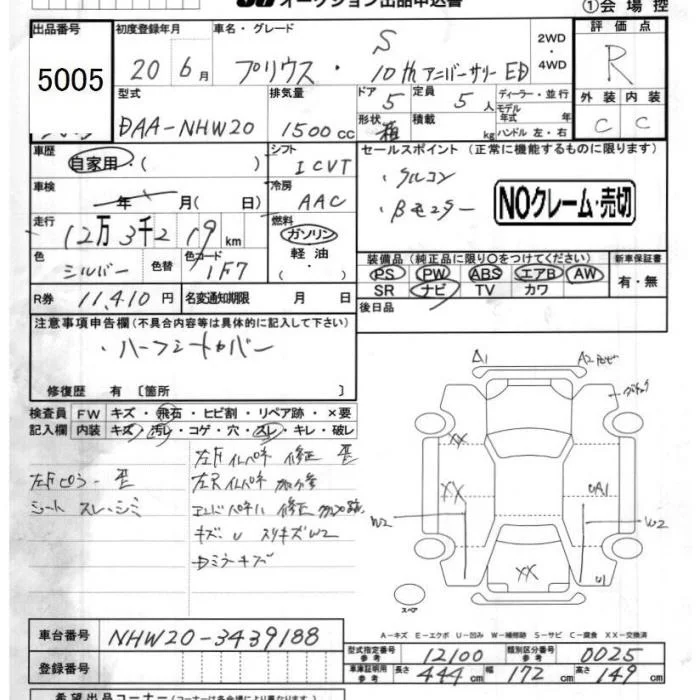 オークション出品申込書
①会場控
出品番号 初度登録年月 車名・グレード 2WD・4WD 評価点
5005 20 6月 プリウス・S 10thアニバーサリーED R
型式 排気量 ドア 5 定員 5人 ディーラー・並行 外装 内装
DAA-NHW20 1500cc 形状 箱 積載 kg モデル年式 年式 ハンドル 左・右 C C
車歴 自家用・( ) シフト ICVT セールスポイント (正常に機能するものに限ります)
車検 年 月( 日) 冷房 AAC ・クルコン
・Bモニター
NOクレーム・売切
走行 12万3千219km 燃料 ガソリン・軽油・( )
装備品 (純正品に限り○をつけてください) 新車保証書
色 シルバー 色替 色コード 1F7
PS PW ABS エアB AW 有・無
SR ナビ TV カワ
R券 11,410円 名変通知期限 月 日 後日品
注意事項申告欄 (不具合内容等は具体的に記入して下さい)
・ハーフシートカバー
修復歴 有 [箇所 ]
検査員 FW キズ・飛石・ヒビ割・リペア跡・×要
記入欄 内装 キズ・汚れ・コゲ・穴・スレ・キレ・破レ
左Fピラー歪
シート スレ・シミ
左Fインパネ 修正 歪
左Rインパネ
キズ・U スリキズW2
A1 A2
XX
XX UA1
W2 W2
XX U1
スペア
A-キズ E-エクボ U-凹み W-補修跡 S-サビ C-腐食 XX-交換済
車台番号 NHW20-3439188
型式指定番号 参考 12100 類別区分番号 参考 0025
登録番号
車庫証明用 参考 長さ 444cm 幅 172cm 高さ 149cm
希望出品コーナー